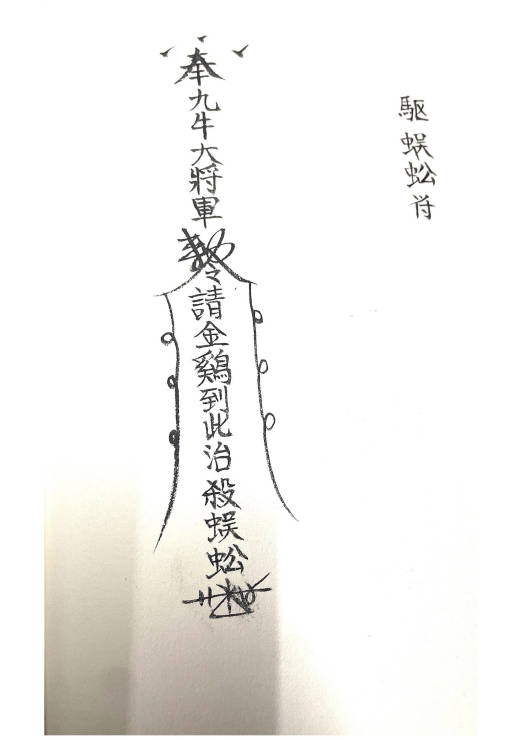 驅蜈蚣符
奉九牛大將軍勅令請金鷄到此治殺蜈蚣